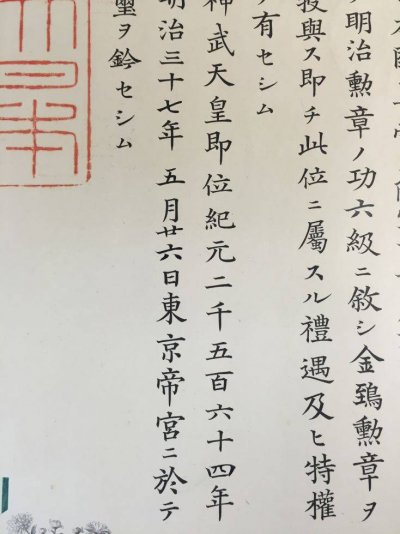 明治勳章ノ功六級ニ敘シ金鵄勳章ヲ
授與ス即チ此位ニ屬スル禮遇及ヒ特權
有セシム
神武天皇即位紀元二千五百六十四年
明治三十七年五月廿六日東京帝宮ニ於テ
璽ヲ鈐セシム
日本